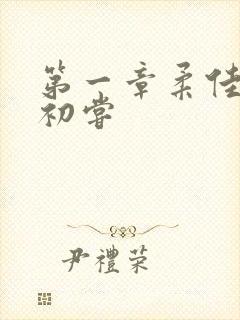 第一章柔佳
初嘗
尹禮荣